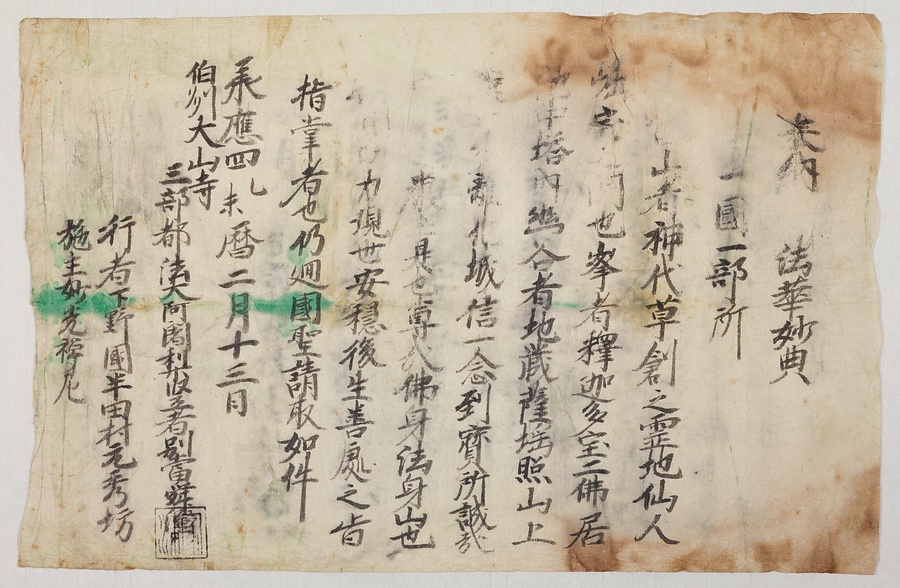 奉納 法華妙典
一國一部所
山者神代草創之霊地仙人
也峯者釋迦多宝二佛居
塔内幽谷者地蔵薩埵照山上
離化城信一念到寳所誠哉
具也專我佛身法身山也
力現世安穏後生善處之旨
指掌者也仍廻國聖請取如件
承應四乙未暦二月十三日
伯州大山寺
三部都法大阿闍梨竪者別當
行者下野國半田村元秀坊
施主妙光禅尼